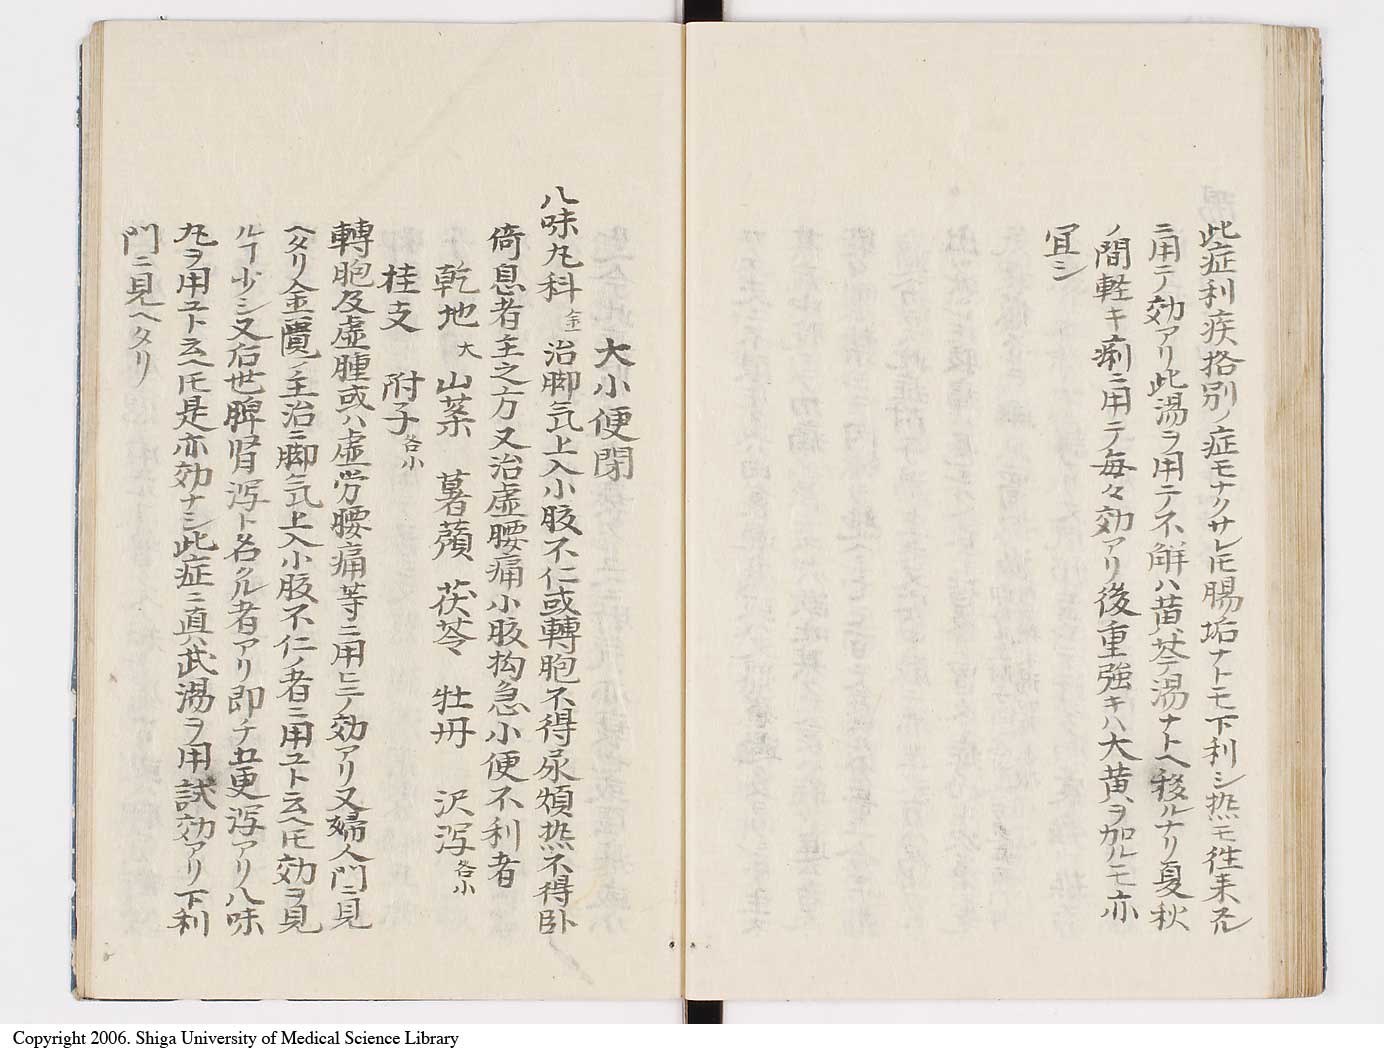 此症利疾格別ノ症モナクサレ𪜈腸垢ナトモ下利シ热モ徃来スル
ニ用テ効アリ此湯ヲ用テ不解ハ黄芩湯ナトヘ移ルナリ夏秋
ノ間軽キ痢ニ用テ毎々効アリ後重強キハ大黄ヲ加ルモ亦
宜シ
大小便閉
八味丸科 金 治脚気上入小肢不仁或轉胞不得尿煩热不得卧
倚息者主之方又治虚腰痛小肢拘急小便不利者
乾地大 山茱 薯蕷 茯苓 牡丹 沢瀉各小
桂支 附子各小
轉胞及虚腫或ハ虚労腰痛等ニ用ヒテ効アリ又婦人門ニ見
ヘタリ金匱ノ主治ニ脚気上入小肢不仁ノ者ニ用ユト云ヘ𪜈効ヲ見
ルヿ少シ又后世脾腎瀉ト名クル者アリ即チ五更瀉アリ八味
丸ヲ用ユト云ヘ𪜈是亦効ナシ此症ニ真武湯ヲ用試効アリ下利
門ニ見ヘタリ
Copyright 2006. Shiga University of Medical Science Library